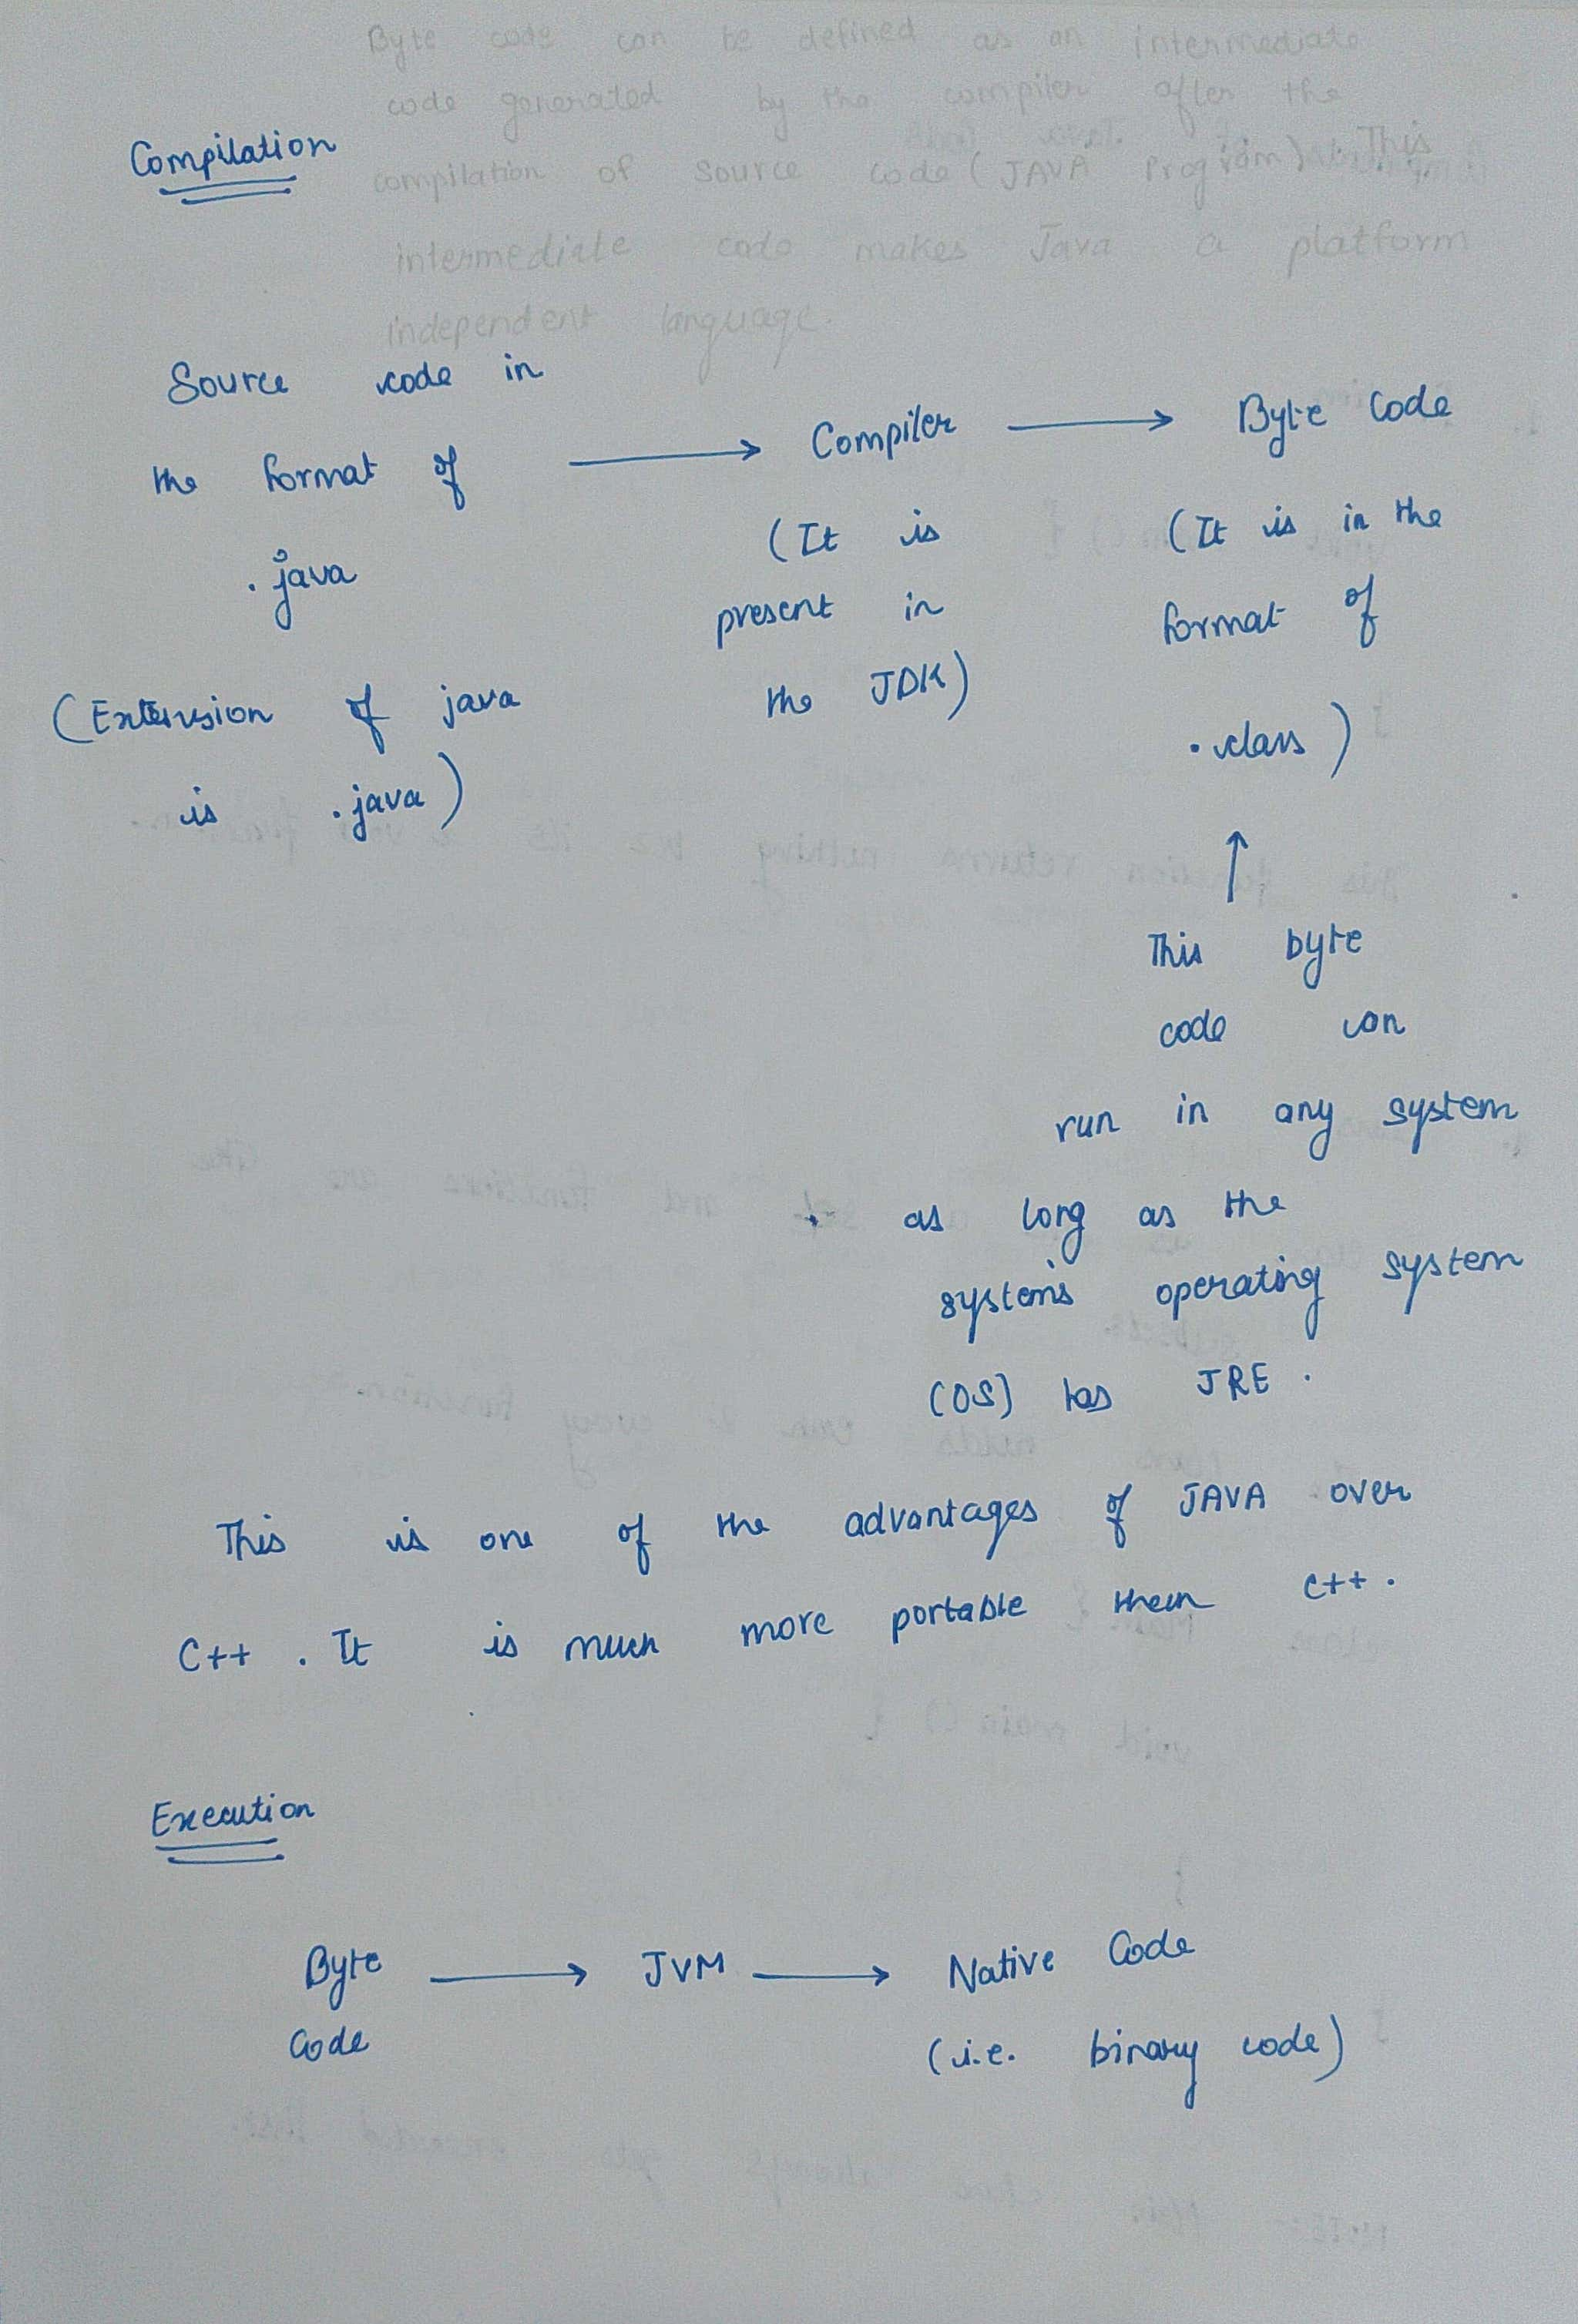 Byte code can be defined as an intermediate
code generated by the compiler after the
compilation of source code (JAVA Program). This
intermediate code makes Java a platform
independent language.
Compilation
Source code in
the format of
.java
(Extension of java
is .java)
⟶ Compiler ⟶
(It is
present in
the JDK)
Byte Code
(It is in the
format of
.class)
↑
This byte
code can
run in any system
as long as the
system's operating system
(OS) has JRE.
This is one of the advantages of JAVA over
C++. It is much more portable then C++.
Execution
Byte ⟶ JVM ⟶ Native Code
Code (i.e. binary code)